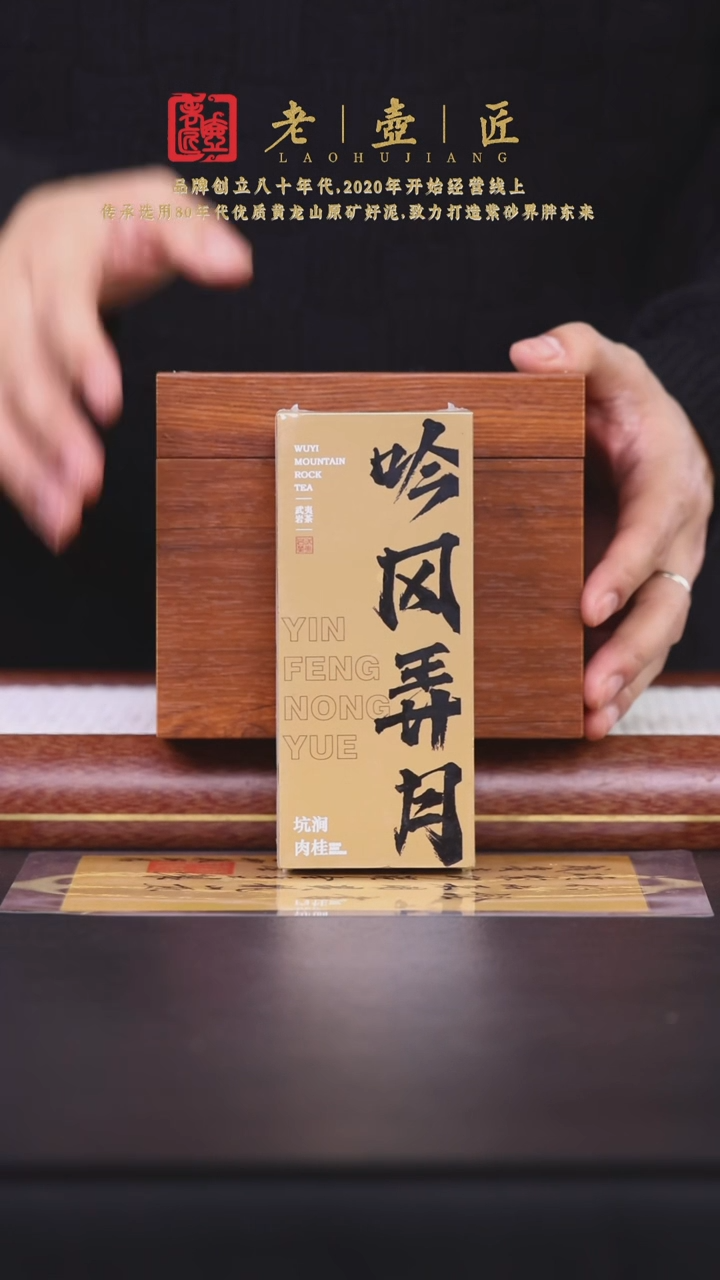 老壶匠
老|壺|匠
LAOHUJIANG
品牌创立八十年代,2020年开始经营线上
传承选用80年代优质黄龙山原矿好泥,致力打造紫砂界胖东来
WUYI
MOUNTAIN
ROCK
TEA
武夷
岩茶
吟风弄月
YIN
FENG
NONG
YUE
坑涧
肉桂